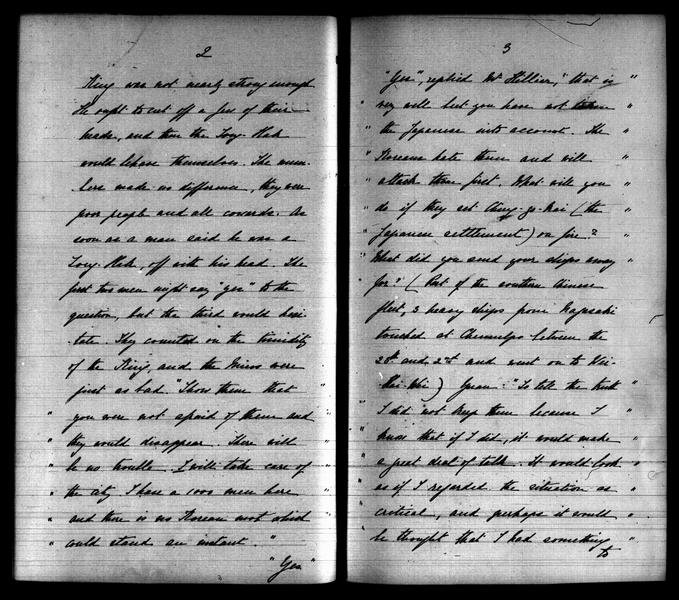 2
King was not nearly strong enough.
He ought to cut off a few of their
heads, and then the Tong Hak
would behave themselves. The num-
bers made no difference, they were
poor people and all cowards. As
soon as a man said he was a
Tong-Hak, off with his head. The
first two men might say "yes" to the
question, but the third would hesi-
tate. They counted on the timidity
of the King, and the Mins were
just as bad. "Show them that "
" you were not afraid of them and "
" they would disappear. There will "
" be no trouble. I will take care of "
" the city. I have a 1000 men here "
" and there is no Korean mob which "
" could stand an instant. "
"Yes"
3
"Yes", replied Mr Hillier, "that is "
very well but you have not taken "
" the Japanese into account. The "
" Koreans hate them and will "
" attack them first. What will you "
" do if they set Ching-go-kai (the "
" Japanese settlement) on fire? "
" What did you send your ships away "
for?" (Part of the southern Chinese
fleet, 3 heavy ships from Nagasaki
touched at Chemulpo between the
and went on to Wei-
Hai-Wei) Yuan: "To tell the truth "
" I did not keep them because I "
" knew that if I did, it would make "
" a great deal of talk. It would look "
" as if I regarded the situation as "
" critical, and perhaps it would "
" be thought that I had something
to